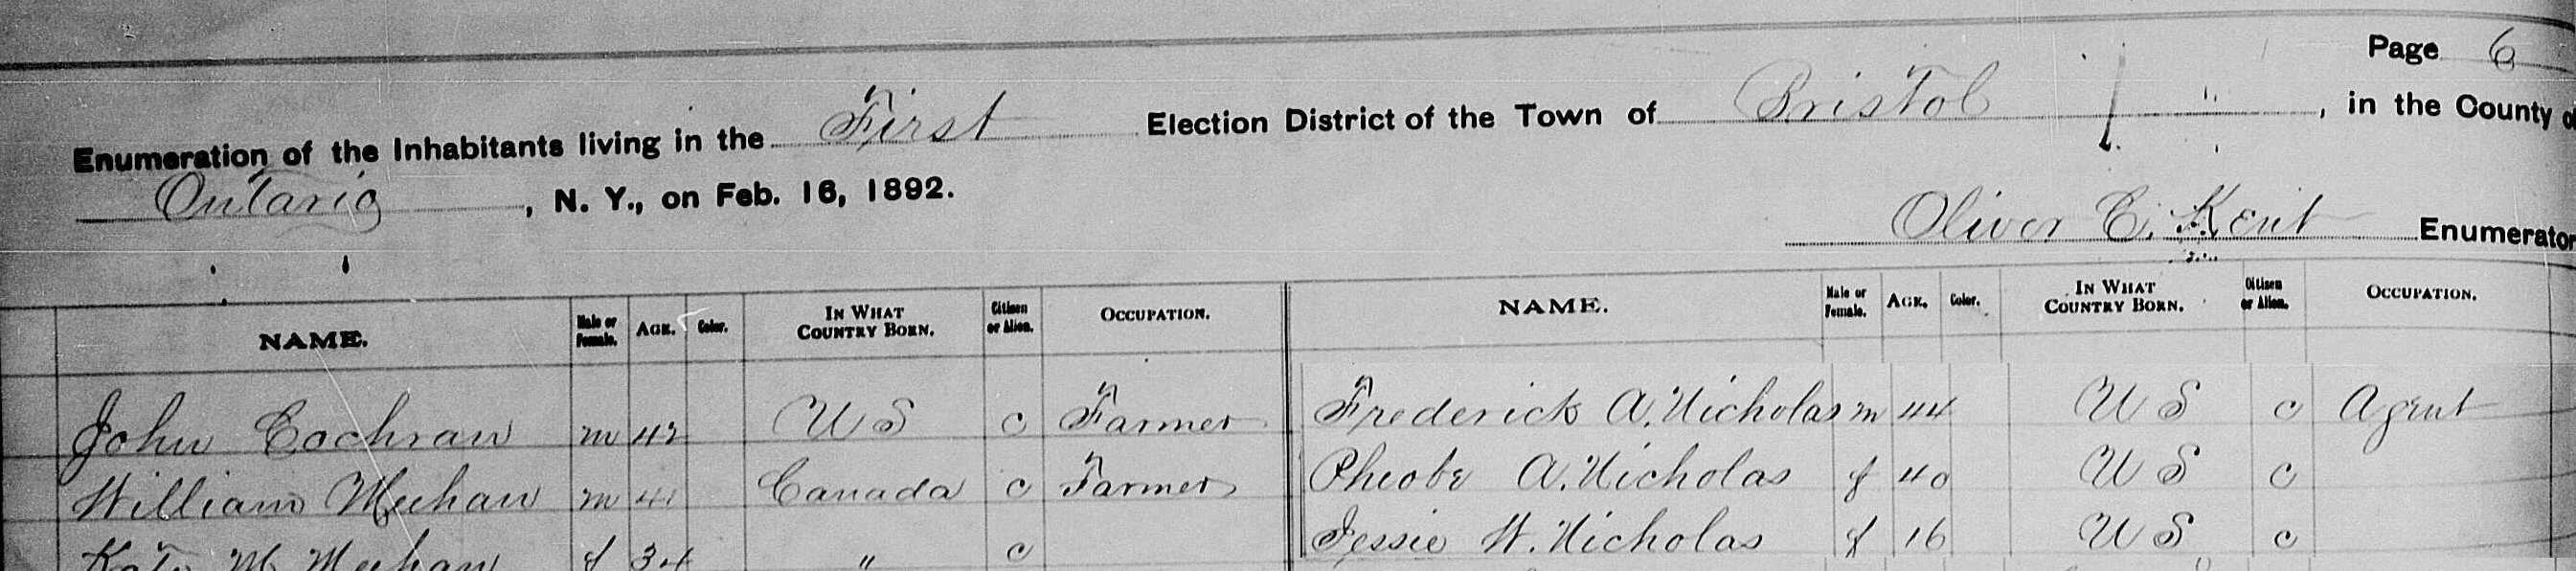 Page 6
Enumeration of the Inhabitants living in the First Election District of the Town of Bristol, in the County of
Ontario, N. Y., on Feb. 16, 1892.
Oliver C. Kent Enumerator
NAME. Male or Female. AGE. Color. IN WHAT COUNTRY BORN. Citizen or Alien. OCCUPATION. NAME. Male or Female. AGE. Color. IN WHAT COUNTRY BORN. Citizen or Alien. OCCUPATION.
John Cochran m 42 U S c Farmer Frederick A. Nicholas m 44 U S c Agent
William Meehan m 41 Canada c Farmer Pheobe A. Nicholas f 40 U S c
Kate M Meehan f 34 " c Jessie W. Nicholas f 16 U S c